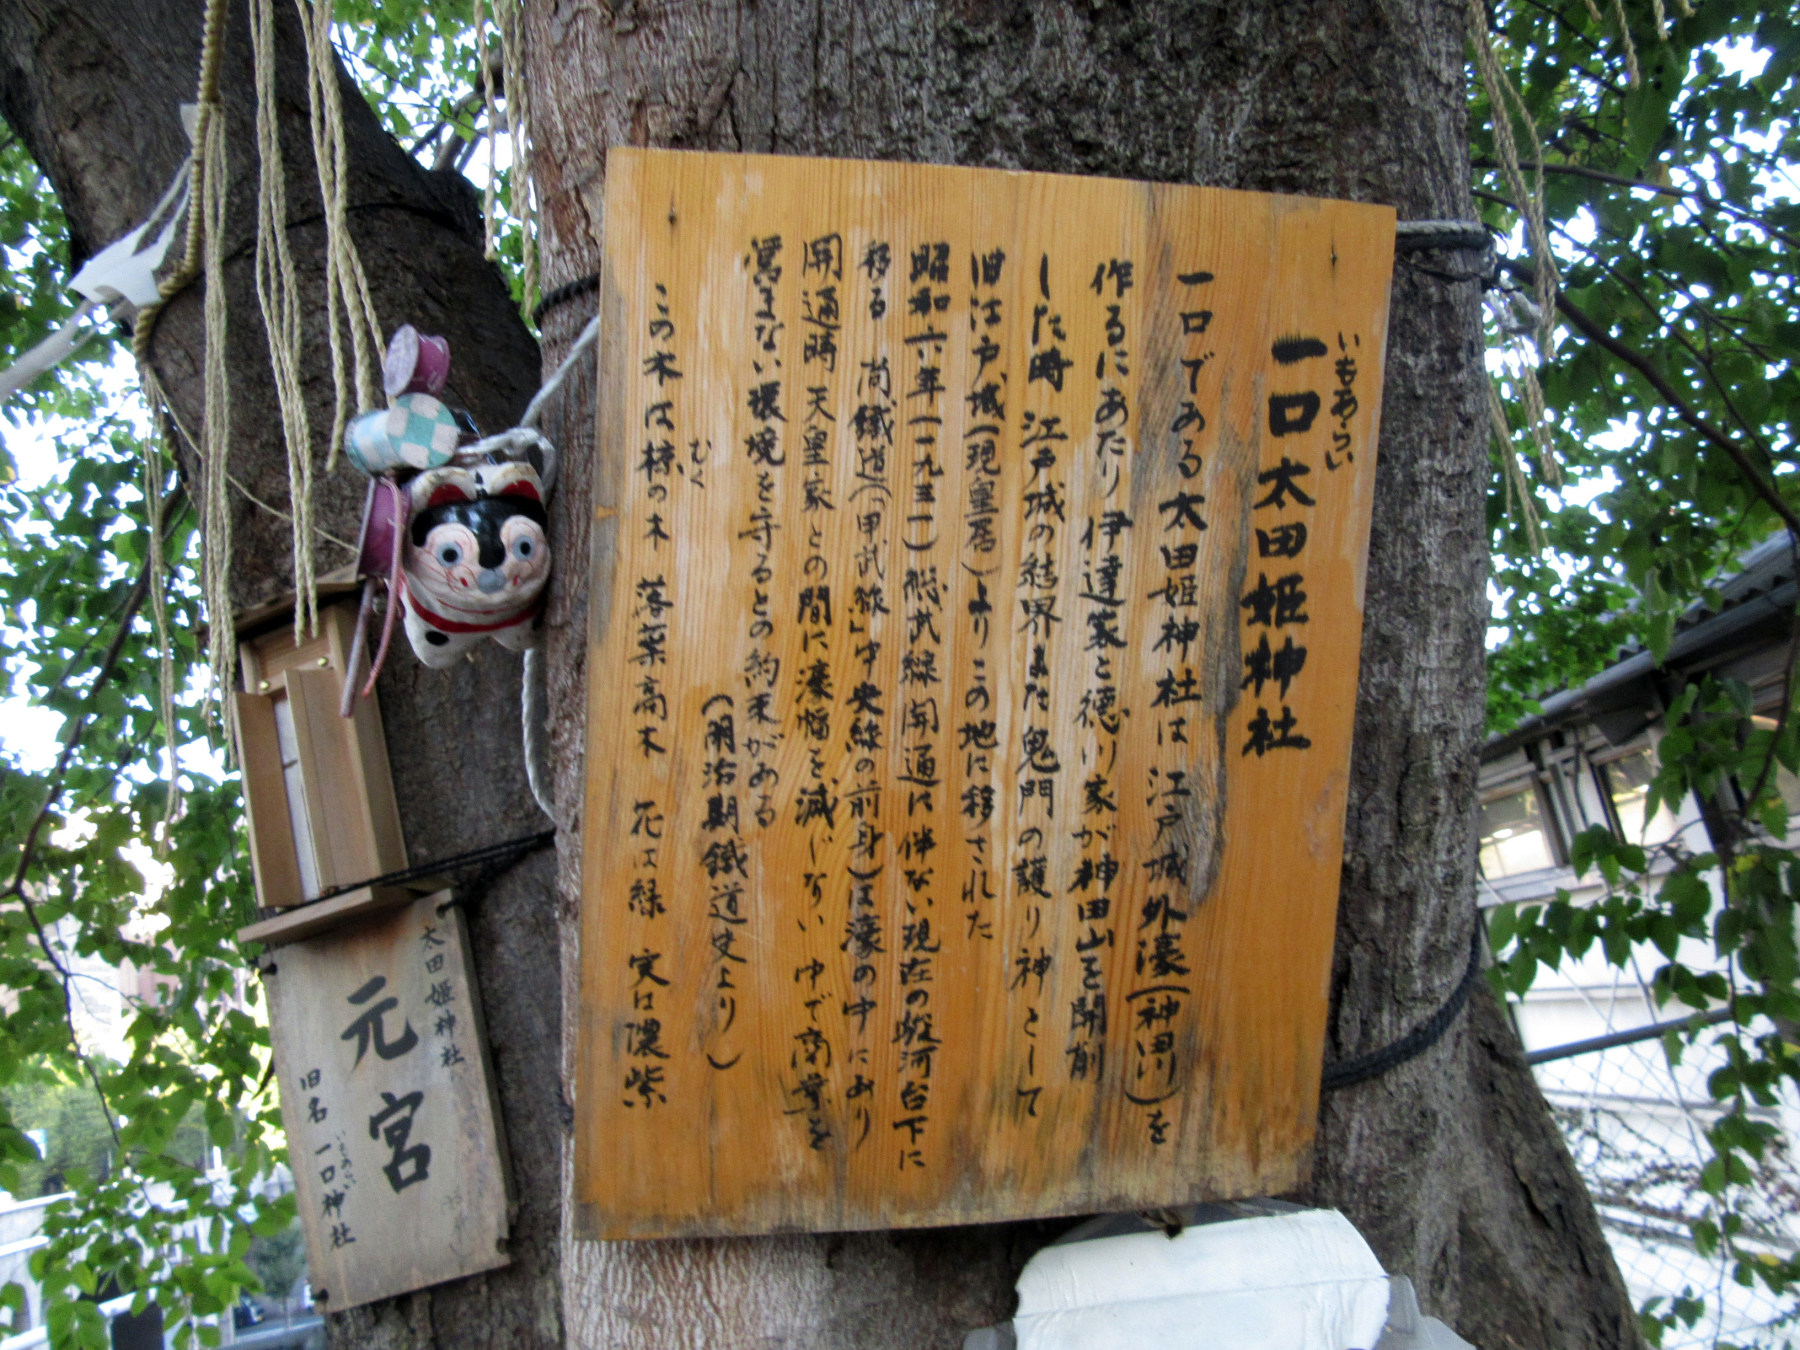 いもあらい
一口太田姫神社
一口である太田姫神社は江戸城外濠(神田川)を
作るにあたり伊達家と徳川家が神田山を開削
した時 江戸城の結界また鬼門の護り神として
旧江戸城(現皇居)よりこの地に移された
昭和六年(一九三一)総武線開通に伴ない現在の駿河台下に
移る 尚鐵道(「甲武線」中央線の前身)は濠の中にあり
開通時 天皇家との間に濠幅を減じない 中で商業を
営まない環境を守るとの約束がある
(明治期鐵道史より)
むく
この木は椋の木 落葉高木 花は緑 実は濃紫
太田姫神社
元宮
いもあらい
旧名 一口神社